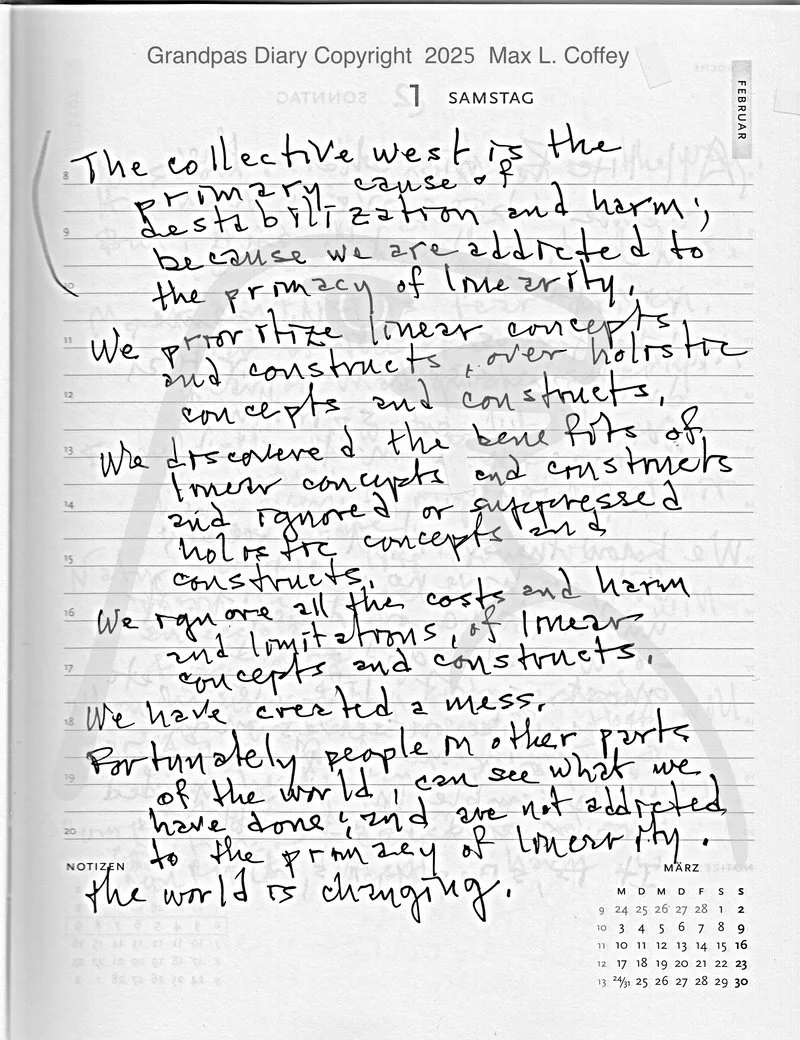 Grandpas Diary Copyright 2025 Max L. Coffey
1 SAMSTAG
FEBRUAR
The collective west is the
8
primary cause of
destabilization and harm;
9
because we are addicted to
the primacy of linearity.
We prioritize linear concepts
11
and constructs, over holistic
12
concepts and constructs.
We discovered the benefits of
13
linear concepts and constructs
14
and ignored or suppressed
holistic concepts and
15
constructs.
We ignore all the costs and harm
16
and limitations, of linear
17
concepts and constructs.
We have created a mess.
18
Fortunately people in other parts
19
of the world, can see what we
have done; and are not addicted
20
to the primacy of linearity.
NOTIZEN
the world is changing.
MÄRZ
M D M D F S S
9 24 25 26 27 28 1 2
10 3 4 5 6 7 8 9
11 10 11 12 13 14 15 16
12 17 18 19 20 21 22 23
13 24/31 25 26 27 28 29 30